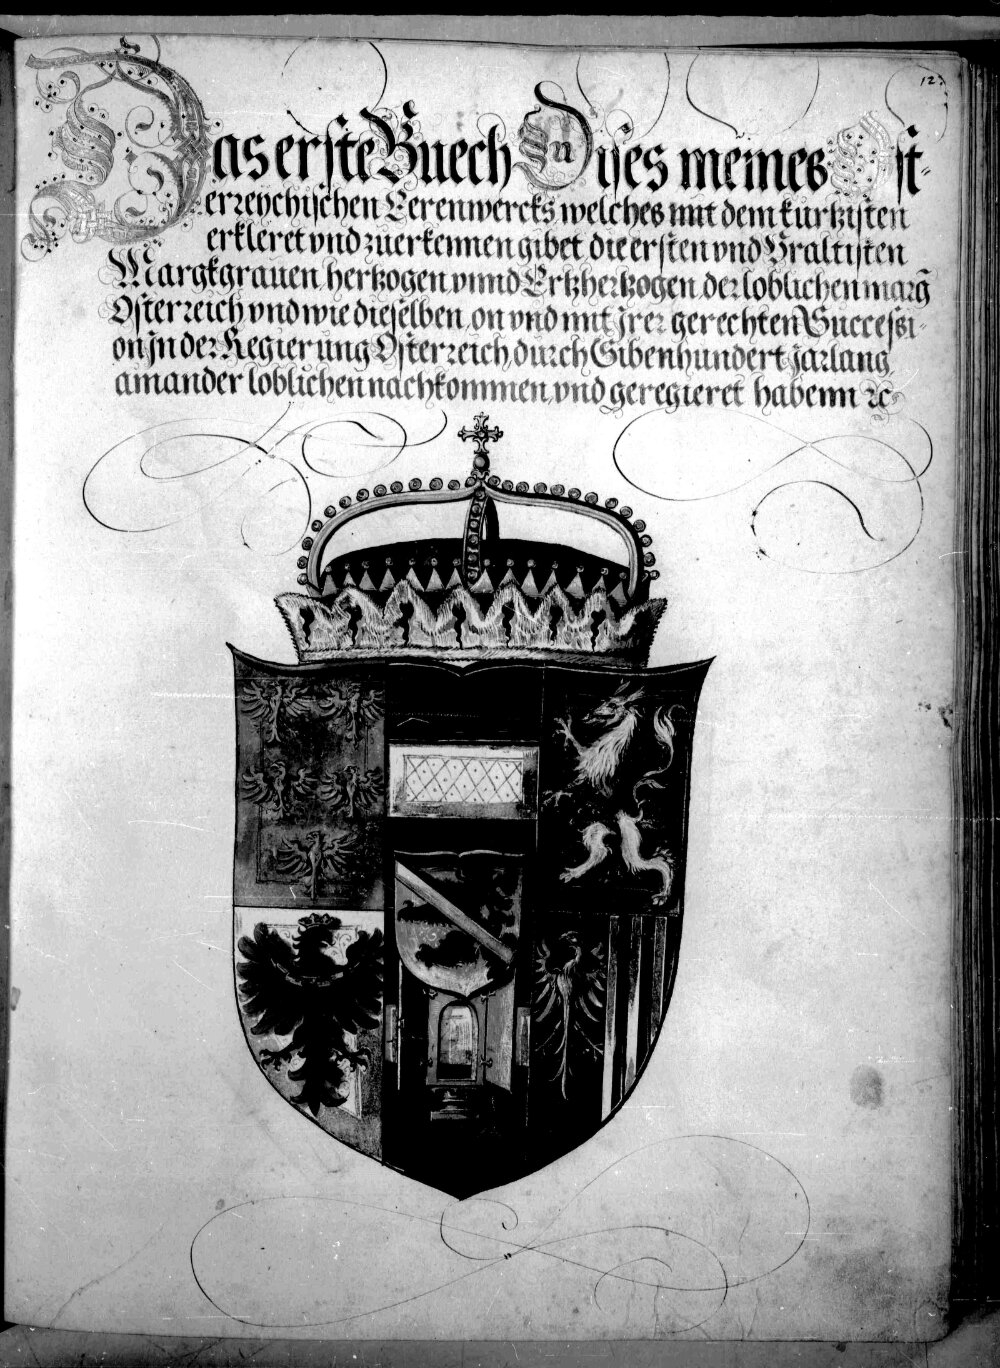 12.
Das erste Buech In dises meines Öst-
erreychischen Eerenwercks welches mit dem kurtzisten
erkleret vnd zuerkennen gibet die ersten vnd Vraltisten
Margkgrauen hertzogen vnnd Ertzhertzogen der loblichen marg
Osterreich vnd wie dieselben, on vnd mit Jrer gerechten Successi-
on jn der Regierung Osterreich, durch Sibenhundert jarlang,
ainander loblichen nachkommen, vnd geregieret habenn ꝛc